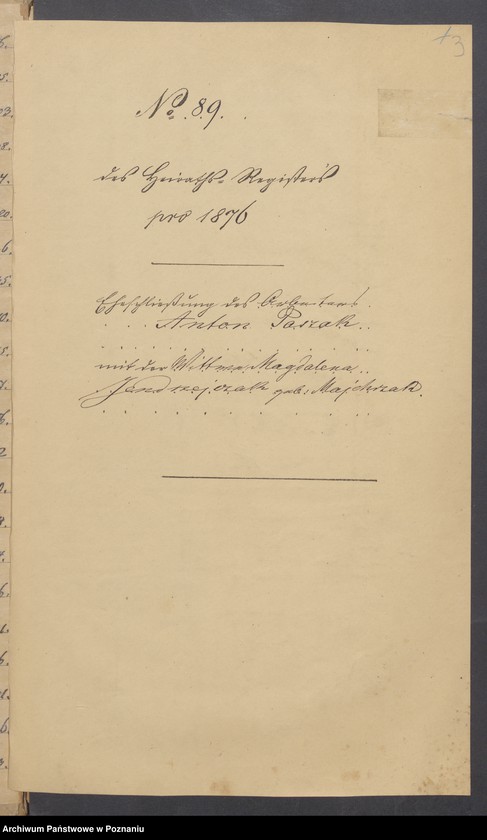 13
No. 89.
des Heiraths-Registers
pro 1876
Eheschließung des Arbeiters
Anton Paszak
mit der Wittwe Magdalena
Jendrzejczak geb. Majchrzak.
Archiwum Państwowe w Poznaniu